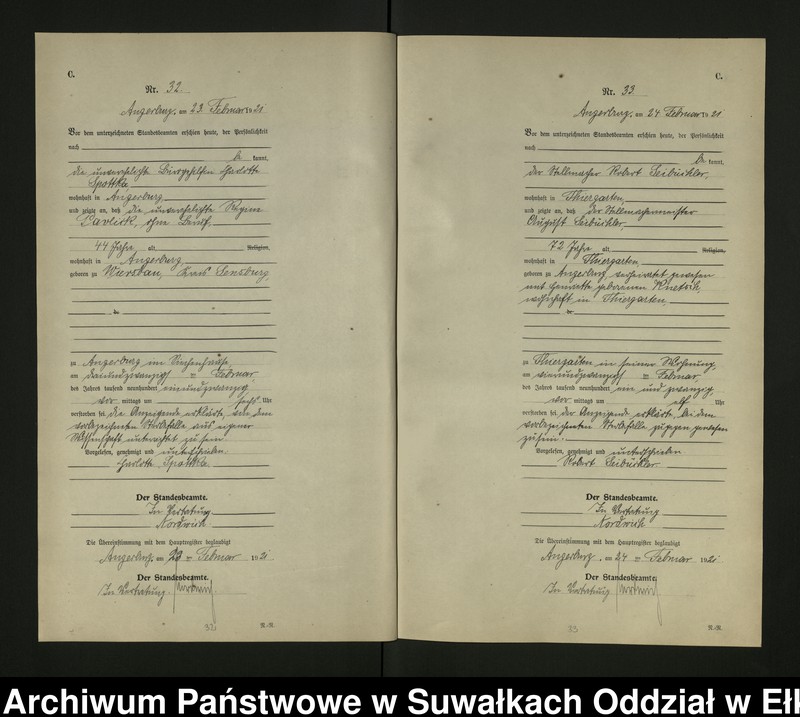 C.
Nr. 32.
Angerburg, am 23. Februar 1921
Vor dem unterzeichneten Standesbeamten erschien heute, der Persönlichkeit
nach
be kannt,
die unverehelichte Charlotte
Spottka,
wohnhaft in Angerburg
und zeigte an, daß die unverehelichte
ohne Beruf,
44 Jahre alt, Religion,
wohnhaft in Angerburg,
geboren zu Kreis Sensburg,
zu Angerburg im Siechenhause,
am dreiundzwanzigsten Februar
des Jahres tausend neunhundert einundzwanzig
vor mittags um sechs Uhr
verstorben sei. Die Anzeigende erklärte, von dem
vorbezeichneten Sterbefalle aus eigener
Wissenschaft unterrichtet zu sein.
Vorgelesen, genehmigt und unterschrieben
Charlotte Spottka
Der Standesbeamte.
In Vertretung
Nordwich
Die Übereinstimmung mit dem Hauptregister beglaubigt
Angerburg, am 23 Februar 1921
Der Standesbeamte.
In Vertretung
32
N.-R.
C.
Nr. 33.
Angerburg, am 24 Februar 1921
Vor dem unterzeichneten Standesbeamten erschien heute, der Persönlichkeit
nach
be kannt,
der Stellmacher Robert
wohnhaft in Thiergarten,
und zeigte an, daß der Stellmachermeister
August
72 Jahre alt, Religion,
wohnhaft in Thiergarten,
geboren zu Angerburg, verheiratet gewesen
mit geborenen
wohnhaft in Thiergarten,
zu Thiergarten in seiner Wohnung,
am vierundzwanzigsten Februar
des Jahres tausend neunhundert ein und zwanzig,
vor mittags um elf Uhr
verstorben sei. Der Anzeigende erklärte, bei dem
vorbezeichneten Sterbefalle zugegen gewesen
zu sein.
Vorgelesen, genehmigt und unterschrieben
Robert
Der Standesbeamte.
In Vertretung
Nordwich
Die Übereinstimmung mit dem Hauptregister beglaubigt
Angerburg, am 24 Februar 1921
Der Standesbeamte.
In Vertretung
33
N.-R.
Archiwum Państwowe w Suwałkach Oddział w Ełk